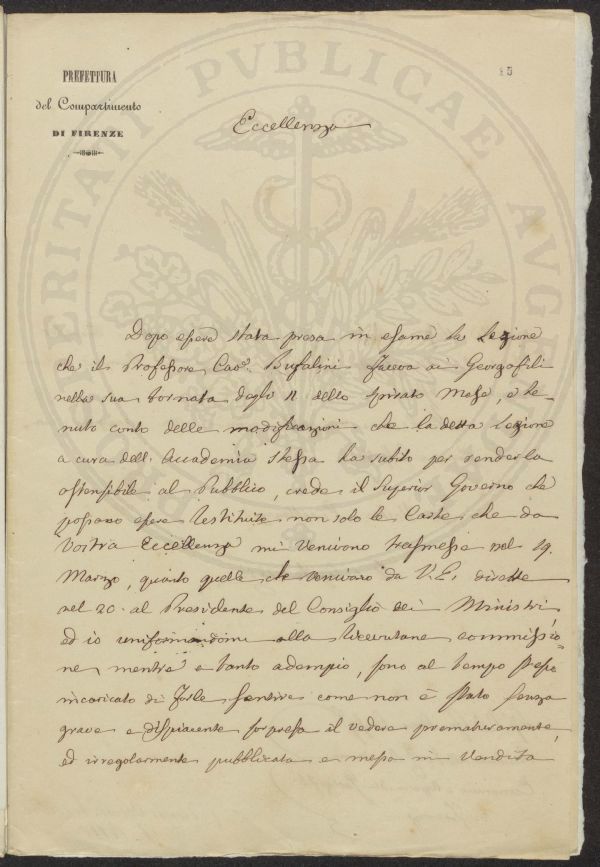 PREFETTURA
del Compartimento
DI FIRENZE
15
PUBLICAE
AUGE
Eccellenza
Dopo essere stata presa in esame la Lezione
che il Professore Cav.e Bufalini faceva ai Georgofili
nella sua tornata degli 11 dello spirato Mese, e te-
nuto conto delle modificazioni che la detta lezione
a cura dell'Accademia stessa ha subito per renderla
ostensibile al Pubblico, crede il Superior Governo che
possano essere restituite non solo le Carte che da
Vostra Eccellenza mi venivono trasmesse nel 19.
Marzo, quanto quelle che venivano da V.E. dirette
nel 20. al Presidente del Consiglio dei Ministri
ed io uniformandomi alla ricevutane commissio=
ne, mentre a tanto adempio, sono al tempo stesso
incaricato di farle sentire come non è stato senza
grave e dispiacente sorpresa il vedere prematuramente,
ed irregolarmente pubblicata e messa in vendita